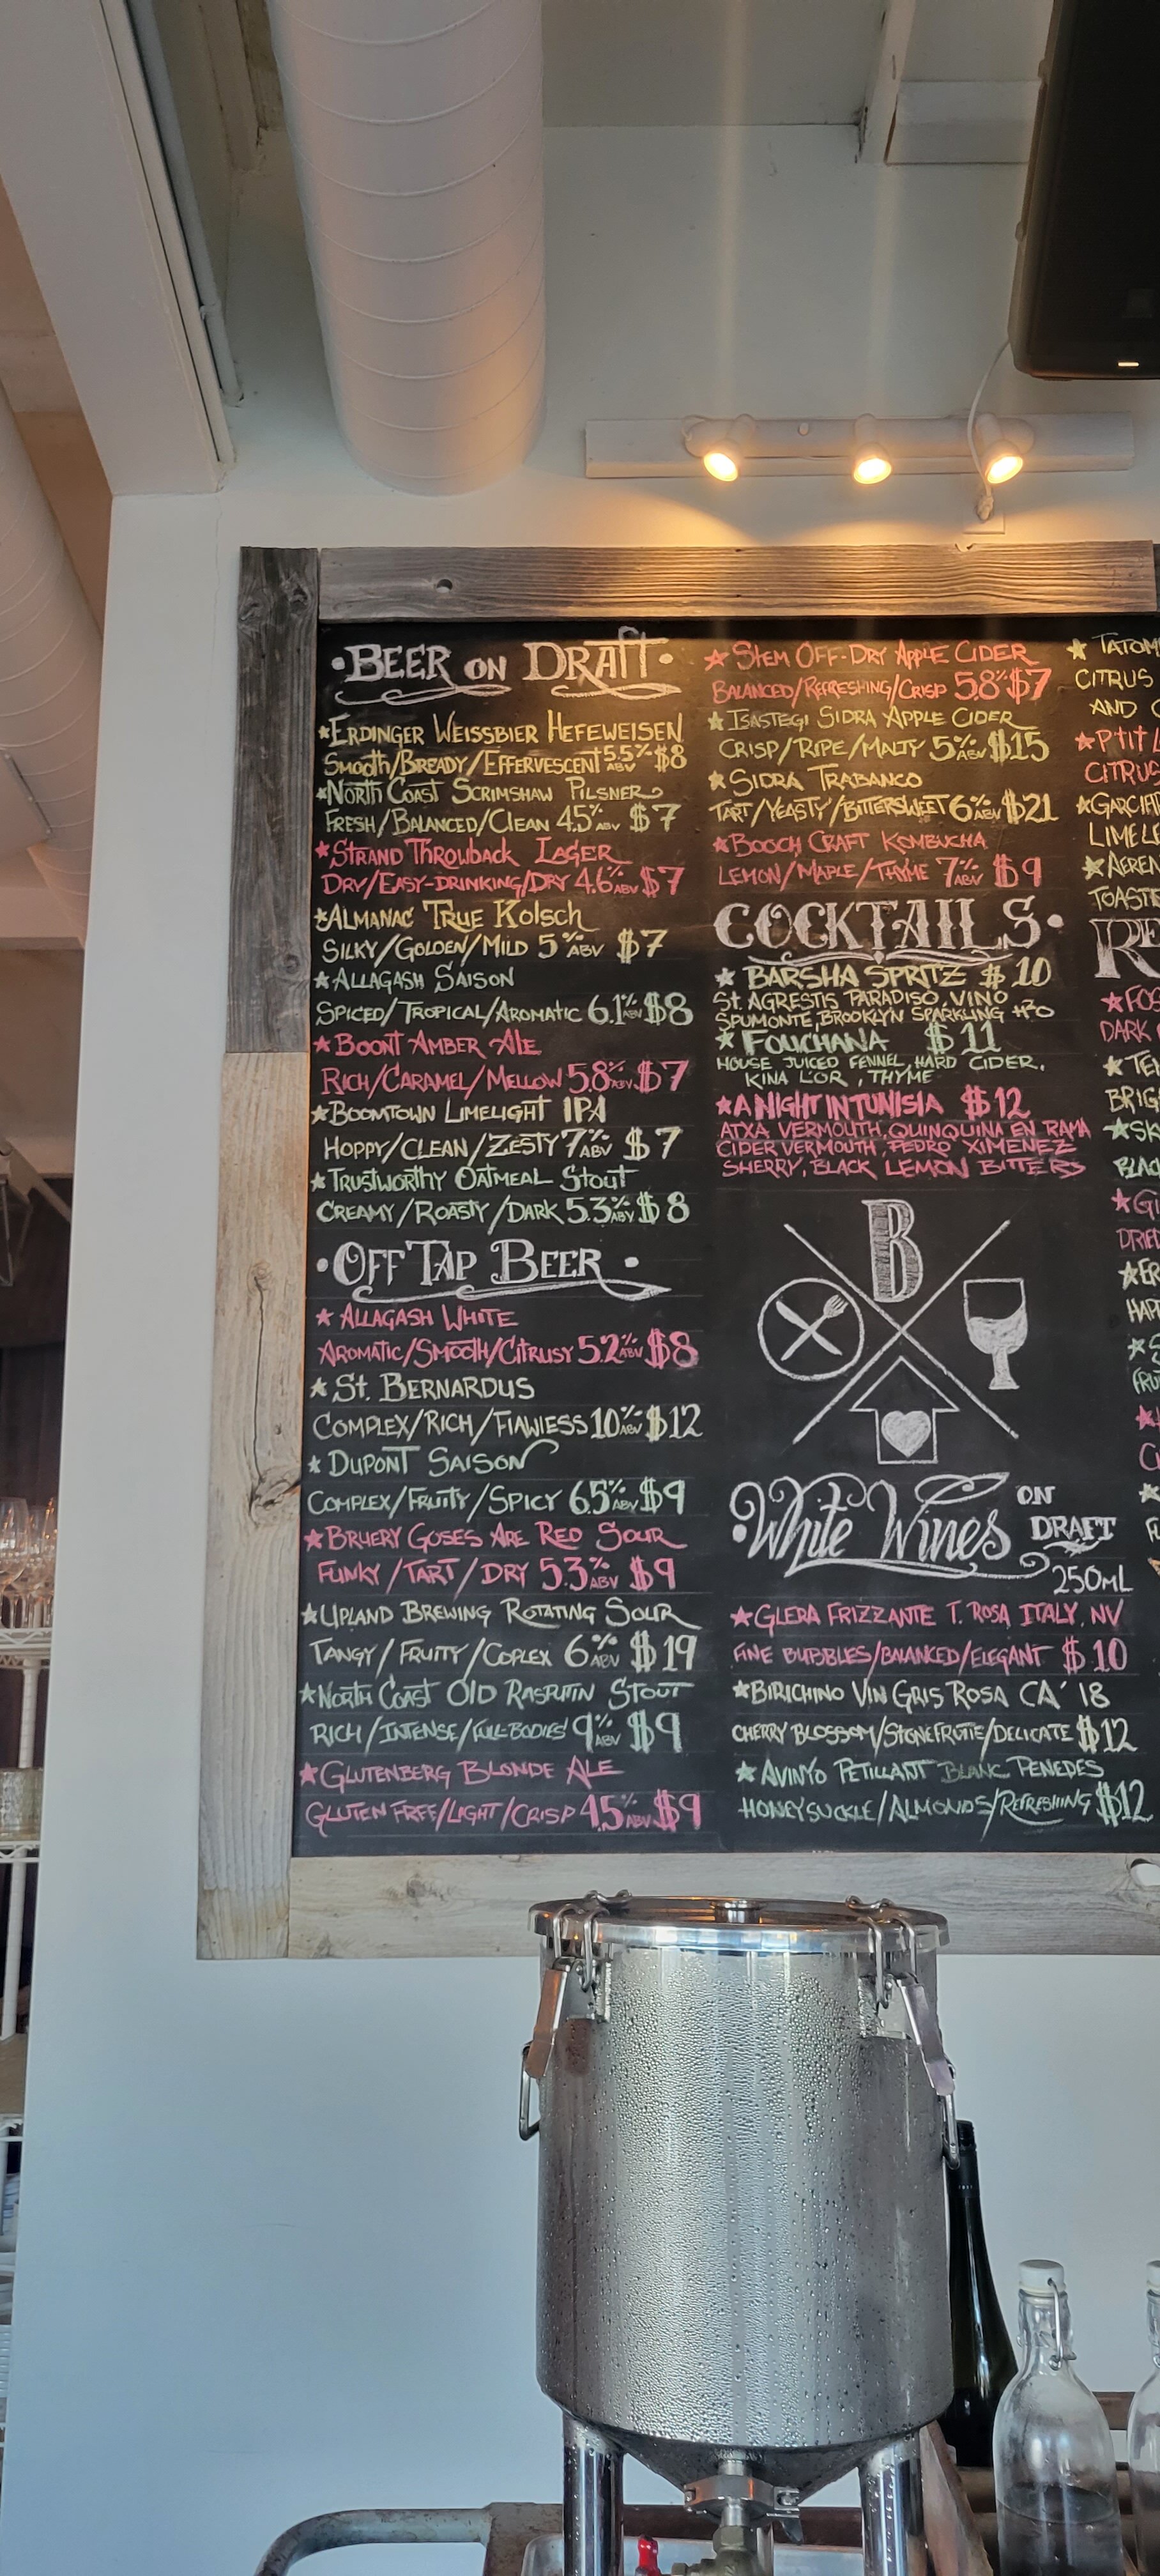 • BEER ON DRAFT •
★ ERDINGER WEISSBIER HEFEWEISEN
SMOOTH/BREADY/EFFERVESCENT 5.5% ABV $8
★ NORTH COAST SCRIMSHAW PILSNER
FRESH/BALANCED/CLEAN 4.5% ABV $7
★ STRAND THROWBACK LAGER
DRY/EASY-DRINKING/DRY 4.6% ABV $7
★ ALMANAC TRUE KOLSCH
SILKY/GOLDEN/MILD 5% ABV $7
★ ALLAGASH SAISON
SPICED/TROPICAL/AROMATIC 6.1% ABV $8
★ BOONT AMBER ALE
RICH/CARAMEL/MELLOW 5.8% ABV $7
★ BOOMTOWN LIMELIGHT IPA
HOPPY/CLEAN/ZESTY 7% ABV $7
★ TRUSTWORTHY OATMEAL STOUT
CREAMY/ROASTY/DARK 5.3% ABV $8
• OFF TAP BEER •
★ ALLAGASH WHITE
AROMATIC/SMOOTH/CITRUSY 5.2% ABV $8
★ ST. BERNARDUS
COMPLEX/RICH/FLAWLESS 10% ABV $12
★ DUPONT SAISON
COMPLEX/FRUITY/SPICY 6.5% ABV $9
★ BRUERY GOSES ARE RED SOUR
FUNKY/TART/DRY 5.3% ABV $9
★ UPLAND BREWING ROTATING SOUR
TANGY/FRUITY/COPLEX 6% ABV $19
★ NORTH COAST OLD RASPUTIN STOUT
RICH/INTENSE/FULL-BODIES 9% ABV $9
★ GLUTENBERG BLONDE ALE
GLUTEN FREE/LIGHT/CRISP 4.5% ABV $9
★ STEM OFF-DRY APPLE CIDER
BALANCED/REFRESHING/CRISP 5.8% $7
★ ISASTEGI SIDRA APPLE CIDER
CRISP/RIPE/MALTY 5% ABV $15
★ SIDRA TRABANCO
TART/YEASTY/BITTERSWEET 6% ABV $21
★ BOOCH CRAFT KOMBUCHA
LEMON/MAPLE/THYME 7% ABV $9
COCKTAILS •
★ BARSHA SPRITZ $10
ST. AGRESTIS PARADISO, VINO
SPUMONTE, BROOKLYN SPARKLING H2O
★ FOUCHANA $11
HOUSE JUICED FENNEL, HARD CIDER,
KINA L'OR, THYME
★ A NIGHT IN TUNISIA $12
ATXA VERMOUTH, QUINQUINA EN RAMA
CIDER VERMOUTH, PEDRO XIMENEZ
SHERRY, BLACK LEMON BITTERS
B
• White Wines ON DRAFT
250ML
★ GLERA FRIZZANTE T. ROSA ITALY, NV
FINE BUBBLES/BALANCED/ELEGANT $10
★ BIRICHINO VIN GRIS ROSA CA' 18
CHERRY BLOSSOM/STONEFRUTIE/DELICATE $12
★ AVINYO PETILLANT BLANC PENEDES
HONEYSUCKLE/ALMONDS/REFRESHING $12
★ TATOM
CITRUS
AND
★ P'TIT
CITRUS
★ GARCIA
LIME LE
★ AEREN
TOASTE
RE
★ FOS
DARK
★ TEN
BRIG
★ SK
BLAC
★ GI
DRIED
★ ER
HAP
★ S
FRU